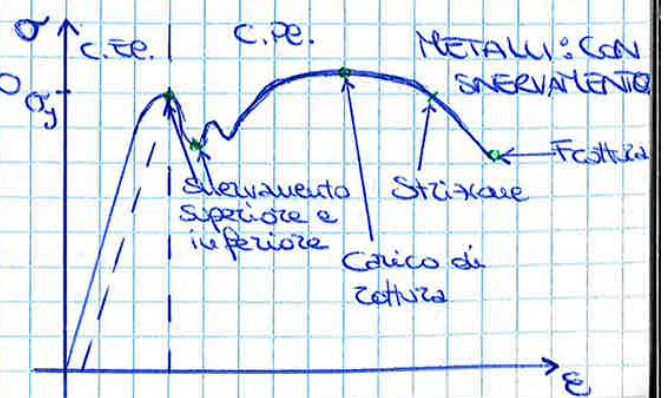 σ
C.EL.
C.PL.
METALLI: CON
SNERVAMENTO
σy
Frattura
Snervamento
superiore e
inferiore
Strizione
Carico di
rottura
ε